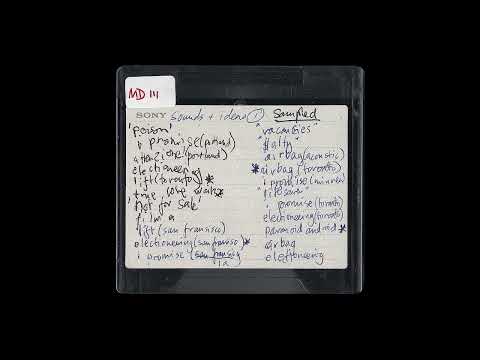 MD 111
SONY
sounds + ideas ① Sampled
'poison'
i promise (portland)
attenzione! (portland)
electioneer
lift (toronto) *
true love waits *
'not for sale'
i'm a
lift (san fransisco)
electioneering (san fransisco) *
i promise
la
"vacancies"
airbag (acoustic)
* airbag (toronto)
i promise
i promise (toronto)
electioneering (toronto)
paranoid android *
airbag
electioneering